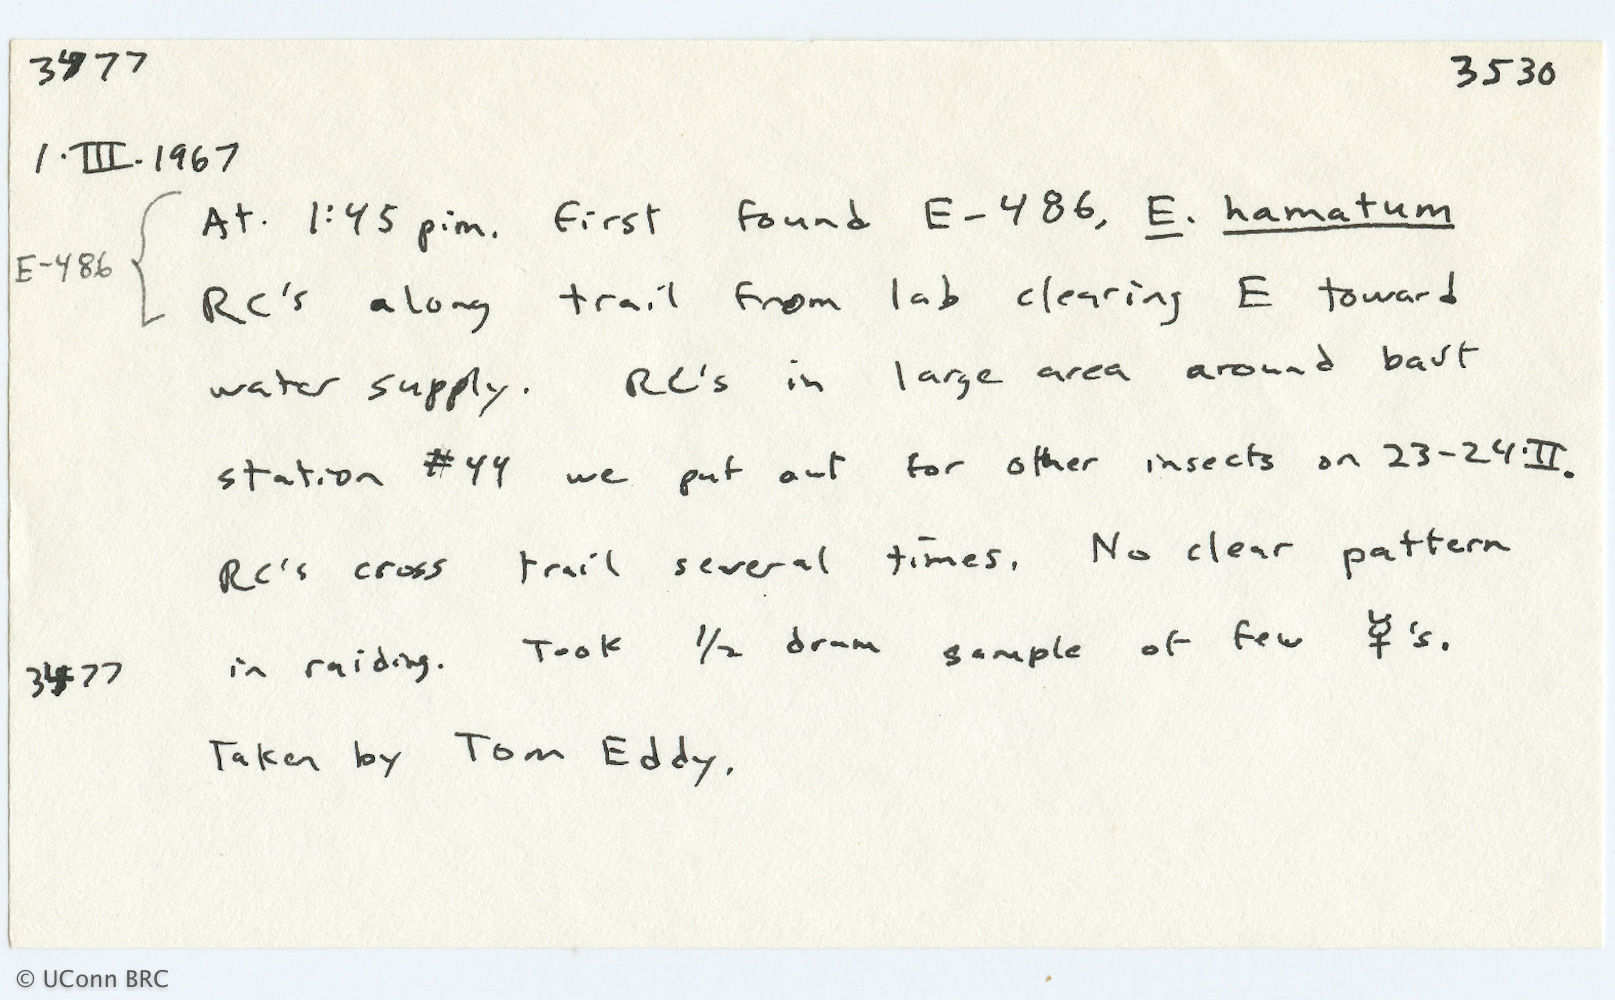 3477 3530
1·III·1967
At. 1:45 p.m. first found E-486, E. hamatum
E-486
RC's along trail from lab clearing E toward
water supply. RC's in large area around bait
station #44 we put out for other insects on 23-24·II.
RC's cross trail several times. No clear pattern
in raiding. Took 1/2 dram sample of few ☿'s.
3477
Taken by Tom Eddy.
© UConn BRC